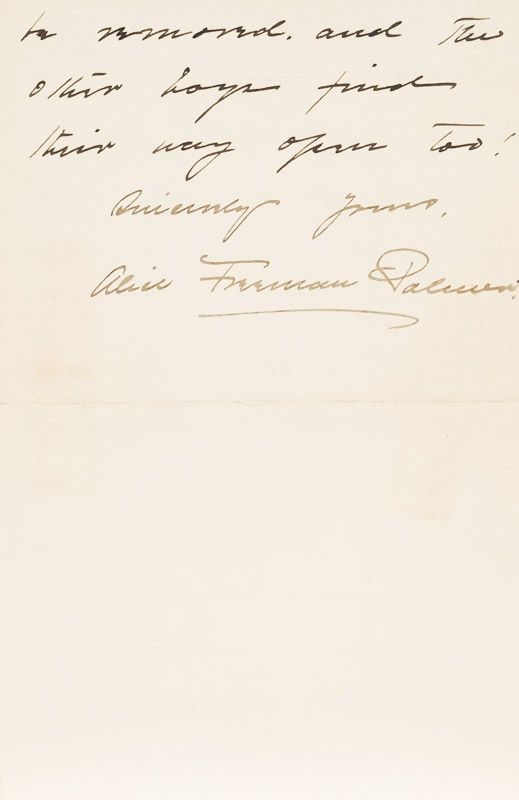 be removed. and the
other boys find
their way open too!
Sincerely yours,
Alice Freeman Palmer.